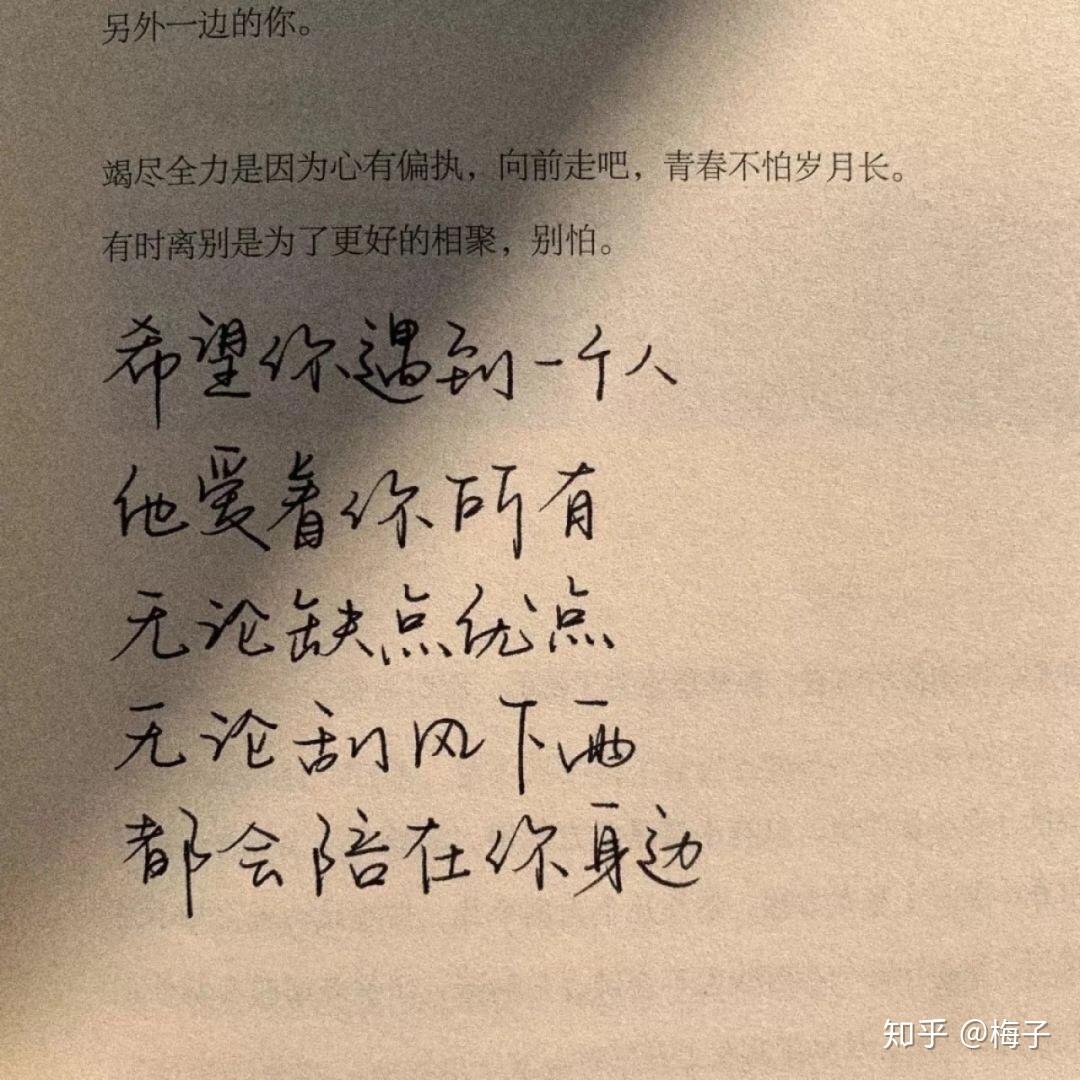 另外一边的你。
竭尽全力是因为心有偏执，向前走吧，青春不怕岁月长。
有时离别是为了更好的相聚，别怕。
希望你遇到一个人
他爱着你所有
无论缺点优点
无论刮风下雨
都会陪在你身边
知乎 @梅子